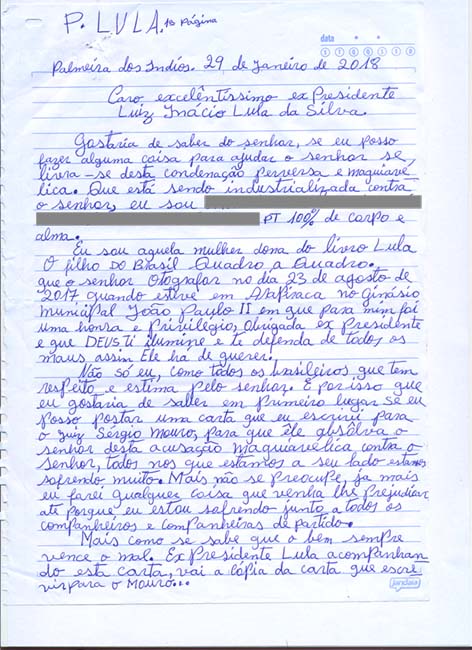 P. LULA. 1ª Página
data
S T Q Q S S D
Palmeira dos Indios. 29 de Janeiro de 2018
Caro excelêntissimo ex Presidente
Luiz Inácio Lula da Silva.
Gostaria de saber do senhor, se eu posso
fazer alguma coisa para ajudar o senhor se
livra-se desta condenação perversa e maquiavé
lica. Que está sendo industrializada contra
o senhor, eu sou
PT 100% de corpo e
alma.
Eu sou aquela mulher dona do livro Lula
O filho DO Brasil Quadro a Quadro.
que o senhor Otografor no dia 23 de agosto de
2017 quando esteve em Arapiraca no Ginásio
Municipal João Paulo II em que para mim foi
uma honra e Privilégio, Obrigada ex Presidente
e que DEUS ti ilumine e te defenda de todos os
maus assin Ele há de querer.
Não só eu, como todos os brasileiros que tem
respeito e estima pelo senhor. E por isso que
eu gostaria de saber em Primeiro lugar se eu
posso postar uma carta que eu escrivi para
o Juiz Sérgio Mouro, para que êle absôlva o
senhor desta acusação maquiavelica contra o
senhor, todos nos que estamos a seu lado estamos
sofrendo muito. Mais não se preocupe, ja mais
eu farei qualquer coisa que venha lhe prejudiar
até porque eu estou sofrendo junto a todos os
companheiros e companheiras de partido.
Mais como se sabe que o bem sempre
vence o mal. Ex Presidente Lula acompanhan
do esta carta, vai a cópia da carta que escre
vi para o Mouro...
jandaia